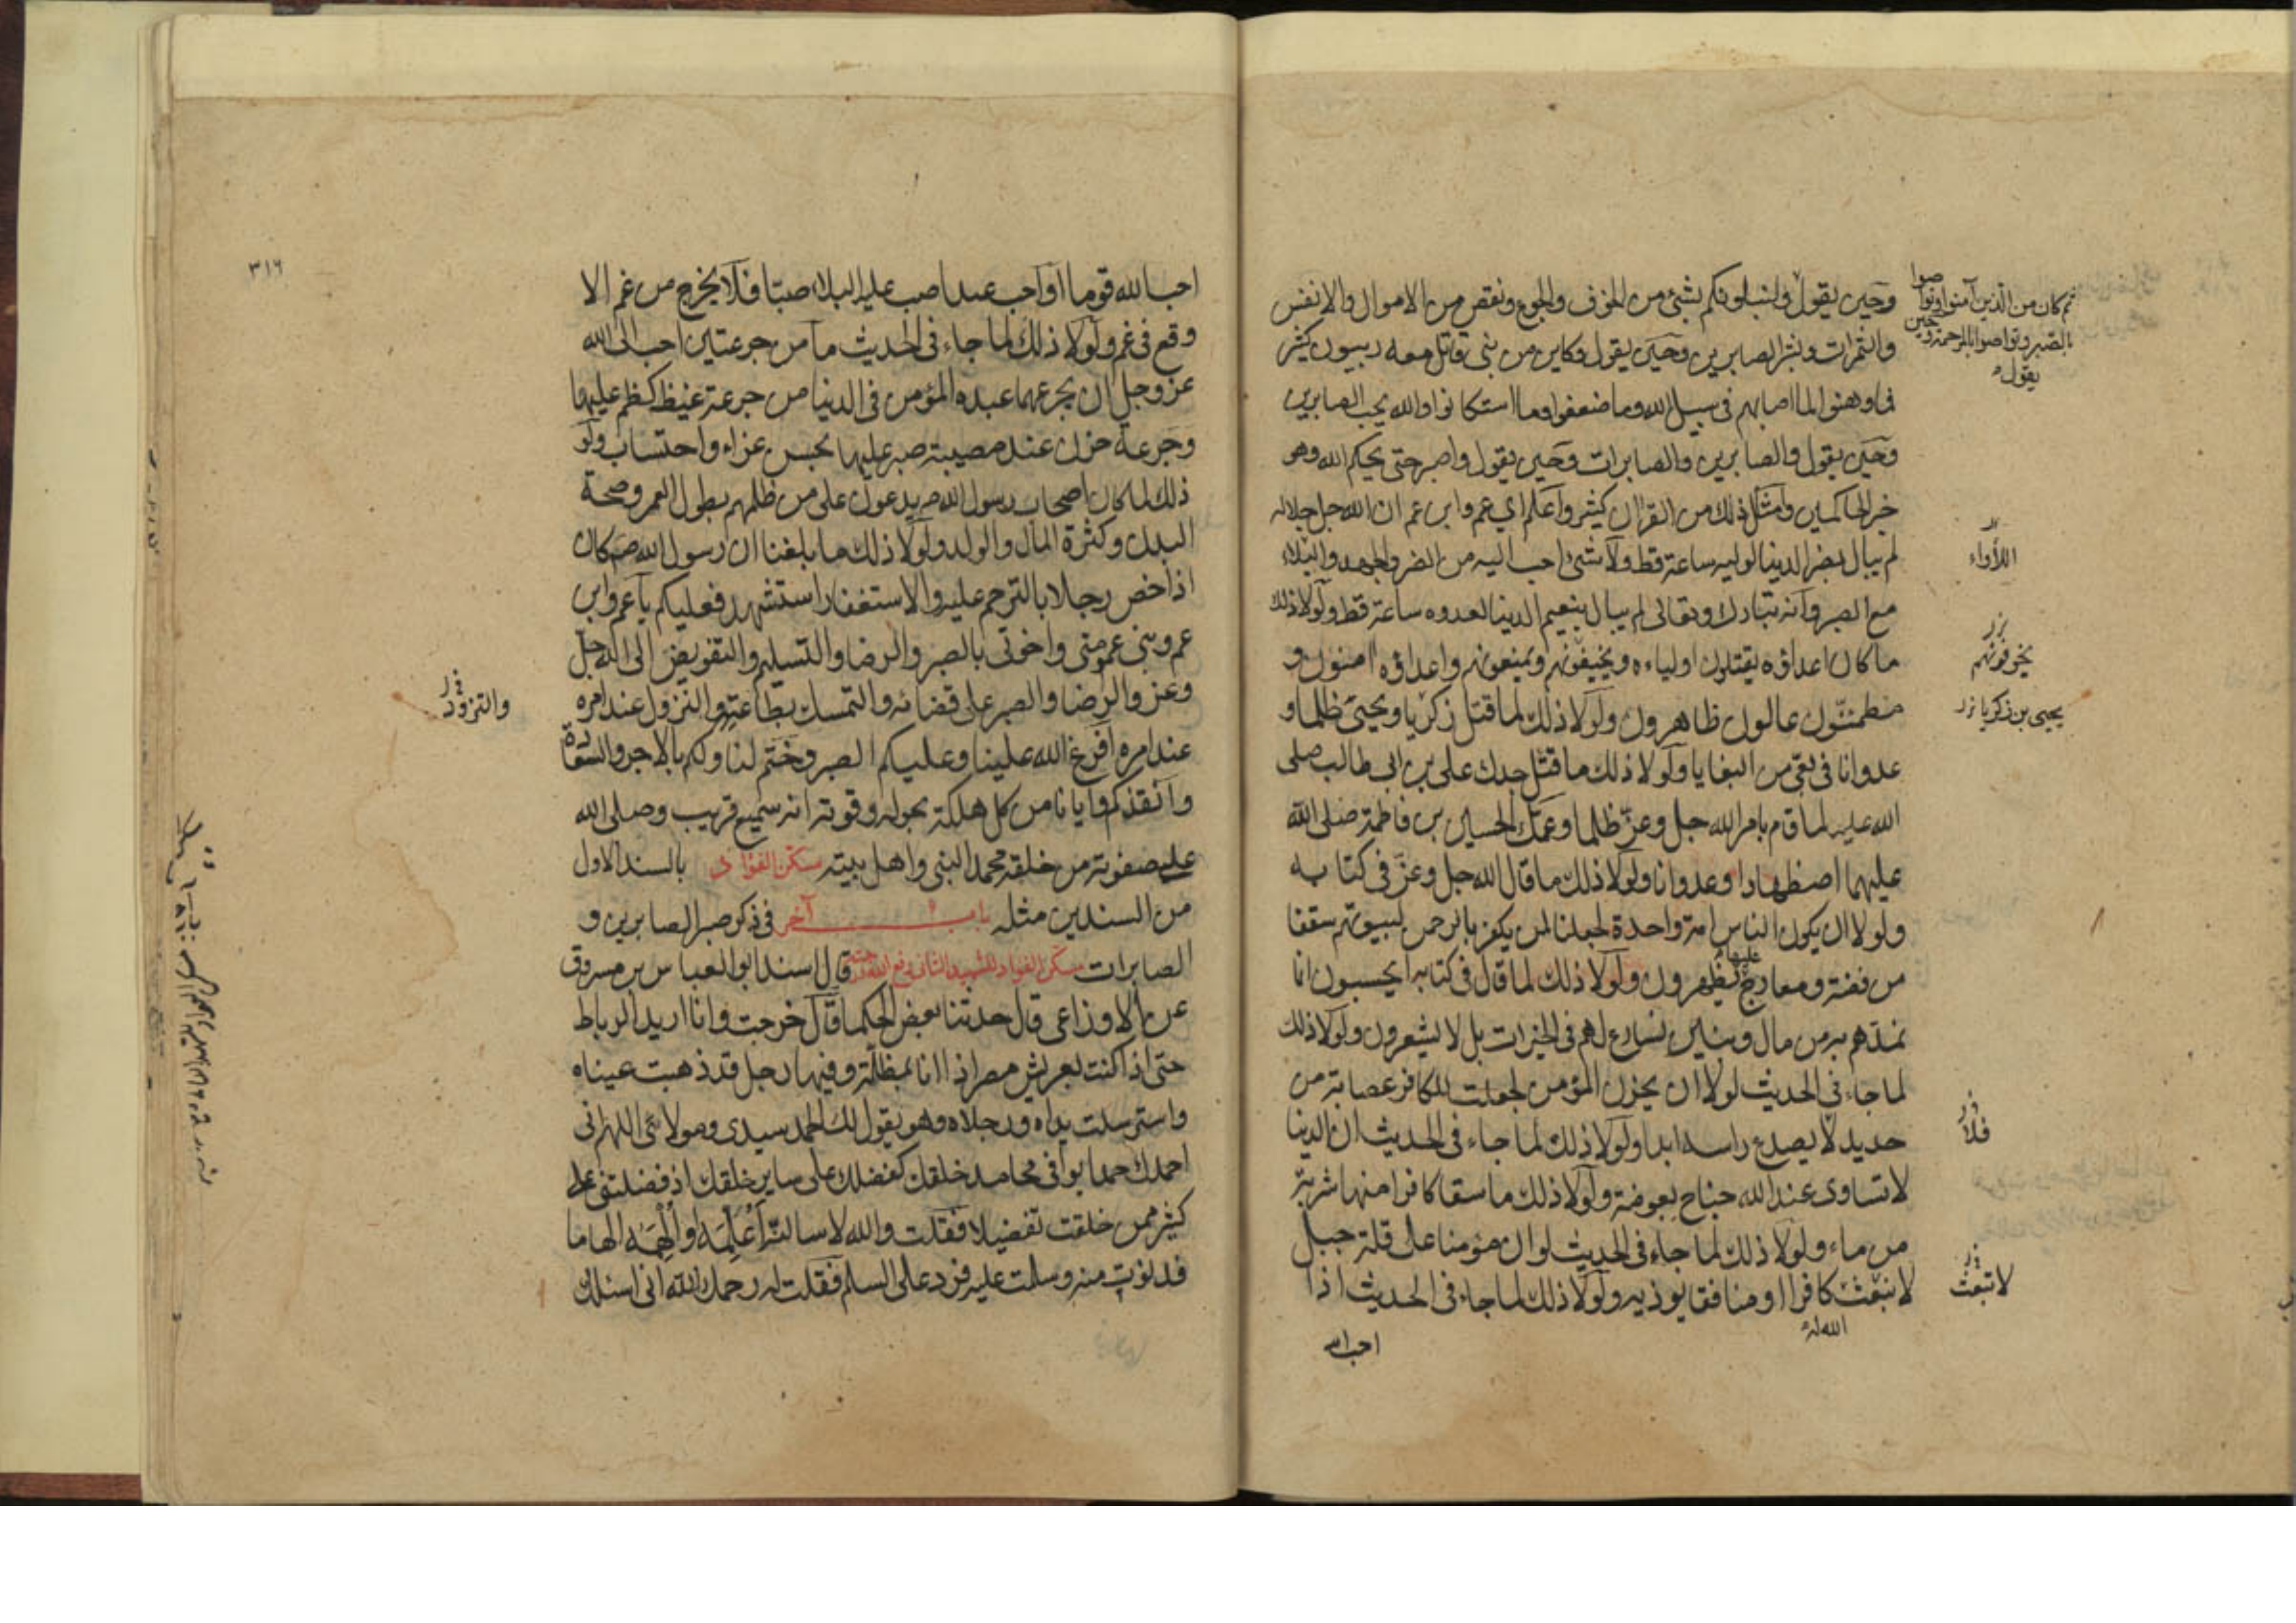 وحين يقول ولنبلونكم بشئ من الخوف والجوع ونقص من الاموال والانفس
والثمرات وبشر الصابرين وحين يقول وكاين من نبي قاتل معه ربيون كثير
فما وهنوا لما اصابهم في سبيل الله وما ضعفوا وما استكانوا والله يحب الصابرين
وحين يقول والصابرين والصابرات وحين يقول واصبر حتى يحكم الله وهو
خير الحاكمين وامثال ذلك من القرآن كثير واعلم اي عم وابن عم ان الله جل جلاله
لم يبال بضر الدنيا لوليه ساعة قط ولا شئ احب اليه من الضر والجهد والبلاء
مع الصبر وانه تبارك وتعالى لم يبال بنعيم الدنيا لعدوه ساعة قط ولولا ذلك
ما كان اعداؤه يقتلون اولياءه ويخيفونهم ويمنعونهم واعداؤه امنون و
مطمئنون عالون ظاهرون ولولا ذلك لما قتل زكريا ويحيى ظلما و
عدوانا في بغي من البغايا ولولا ذلك ما قتل جدك علي بن ابي طالب صلى
الله عليه لما قام بامر الله جل وعز ظلما وعمك الحسين بن فاطمة صلى الله
عليهما اضطهادا وعدوانا ولولا ذلك ما قال الله جل وعز في كتابه
ولولا ان يكون الناس امة واحدة لجعلنا لمن يكفر بالرحمن لبيوتهم سقفا
من فضة ومعارج عليها يظهرون ولولا ذلك لما قال في كتابه ايحسبون انما
نمدهم به من مال وبنين نسارع لهم في الخيرات بل لا يشعرون ولولا ذلك
لما جاء في الحديث لولا ان يحزن المؤمن لجعلت للكافر عصابة من
حديد لا يصدع راسه ابدا ولولا ذلك لما جاء في الحديث ان الدنيا
لا تساوى عند الله جناح بعوضة ولولا ذلك ما سقا كافرا منها شربة
من ماء ولولا ذلك لما جاء في الحديث لو ان مؤمنا على قلة جبل
لانبعث كافرا او منافقا يوذيه ولولا ذلك لما جاء في الحديث اذا
الله له
احب الله
ثم كان من الذين آمنوا وتواصوا
بالصبر وتواصوا بالمرحمة وحين
يقول
اللأواء
يخوفونهم
يحيى بن زكريا
فلا
لا تبعث
٣١٦
احب الله قوما او احب عبدا صب عليه البلاء صبا فلا يخرج من غم الا
وقع في غم ولولا ذلك لما جاء في الحديث ما من جرعتين احب الى الله
عز وجل ان يجرعهما عبده المؤمن في الدنيا من جرعة غيظ كظم عليها
وجرعة حزن عند مصيبة صبر عليها بحسن عزاء واحتساب ولو
ذلك لما كان اصحاب رسول الله ص يدعون على من ظلمهم بطول العمر وصحة
البدن وكثرة المال والولد ولولا ذلك ما بلغنا ان رسول الله ص كان
اذا خص رجلا بالترحم عليه والاستغفار استشهد فعليكم يا عم وابن
عم وبني عمومتي واخوتي بالصبر والرضا والتسليم والتفويض الى الله جل
وعز والرضا والصبر على قضائه والتمسك بطاعته والنزول عند امره
عند امره افرغ الله علينا وعليكم الصبر وختم لنا ولكم بالاجر والسعادة
وانقذكم وايانا من كل هلكة بحوله وقوته انه سميع قريب وصلى الله
على صفوته من خلقه محمد النبي واهل بيته مسكن الفؤاد بالسند الاول
من السندين مثله باب آخر في ذكر صبر الصابرين و
الصابرات مسكن الفواد للشهيد الثاني رفع الله درجته قال اسند ابو العباس بن مسروق
عن الاوزاعي قال حدثنا بعض الحكما قال خرجت وانا اريد الرباط
حتى اذا كنت بعريش مصر اذا انا بمظلة وفيها رجل قد ذهبت عيناه
واسترسلت يداه ورجلاه وهو يقول لك الحمد سيدي ومولائي اللهم اني
احمدك حمدا يوافي محامد خلقك كفضلك على ساير خلقك اذ فضلتني على
كثير ممن خلقت تفضيلا فقلت والله لاسالنه أعلمه او ألهمه الهاما
فدنوت منه وسلمت عليه فرد علي السلم فقلت له رحمك الله اني اسئلك
والتزود